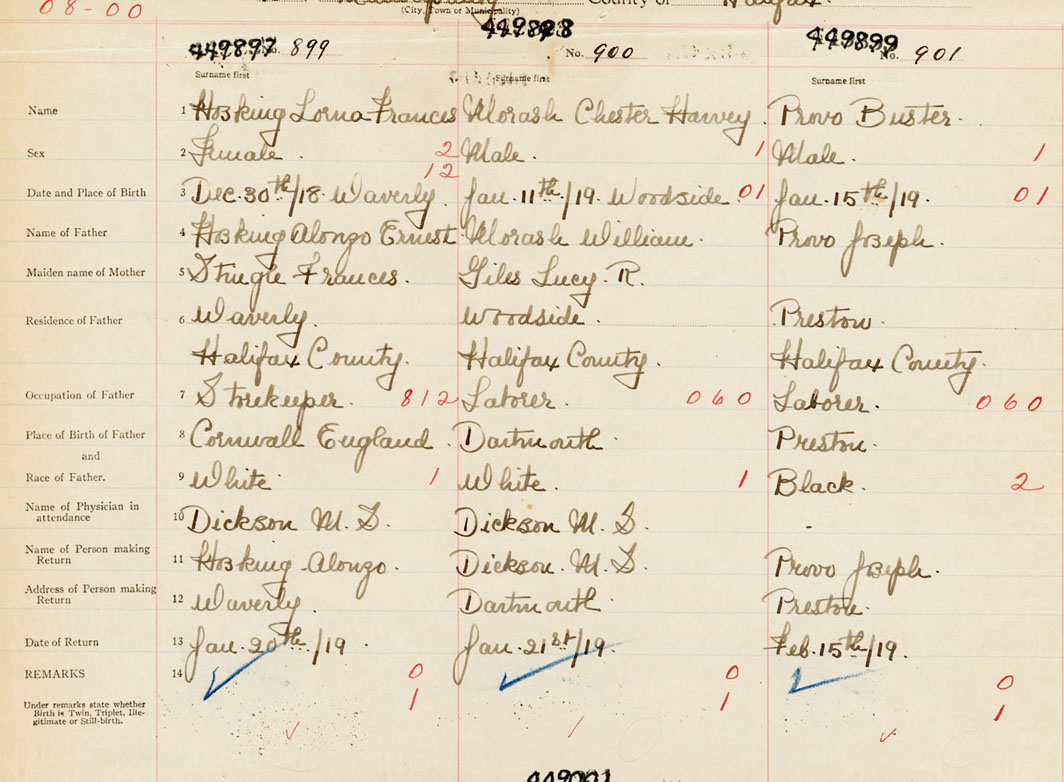 08-00
(City, Town or Municipality) County of Halifax.
449897 No. 899 449898 No. 900 449899 No. 901
Surname first Surname first Surname first
Name 1 Hosking Lorna Frances Morash Chester Harvey. Provo Buster.
Sex 2 Female. 2 Male. 1 Male. 1
12
Date and Place of Birth 3 Dec. 30th/18. Waverly. Jan. 11th/19. Woodside. 01 Jan. 15th/19. 01
Name of Father 4 Hosking Alonzo Ernest Morash William. Provo Joseph.
Maiden name of Mother 5 Frances. Giles Lucy. R.
Residence of Father 6 Waverly. Woodside. Preston.
Halifax County. Halifax County. Halifax County.
Occupation of Father 7 Storekeeper. 812 Laborer. 060 Laborer. 060
Place of Birth of Father 8 Cornwall England. Dartmouth. Preston.
and
Race of Father. 9 White. 1 White. 1 Black. 2
Name of Physician in
attendance 10 Dickson M. S. Dickson M. S. -
Name of Person making
Return 11 Hosking Alonzo. Dickson. M. S. Provo Joseph.
Address of Person making
Return 12 Waverly. Dartmouth. Preston.
Date of Return 13 Jan. 20th/19. Jan. 21st/19. Feb. 15th/19.
REMARKS 14 0 0 0
1 1 1
Under remarks state whether
Birth is Twin, Triplet, Ille-
gitimate or Still-birth.